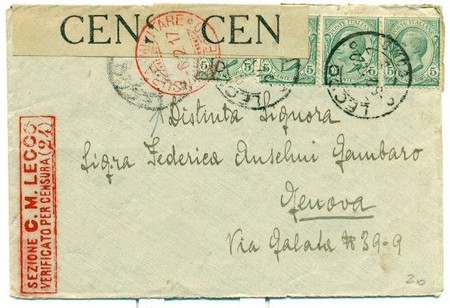 CENS CEN
POSTE ITALIANE POSTE ITALIANE
5 5 5 5 5 5
LECCO
LECCO
Distinta Signora
Sigra Federica Anselmi Gambaro
Genova
Via Galata # 39-9
SEZIONE C. M. LECCO
VERIFICATO PER CENSURA (24)
20